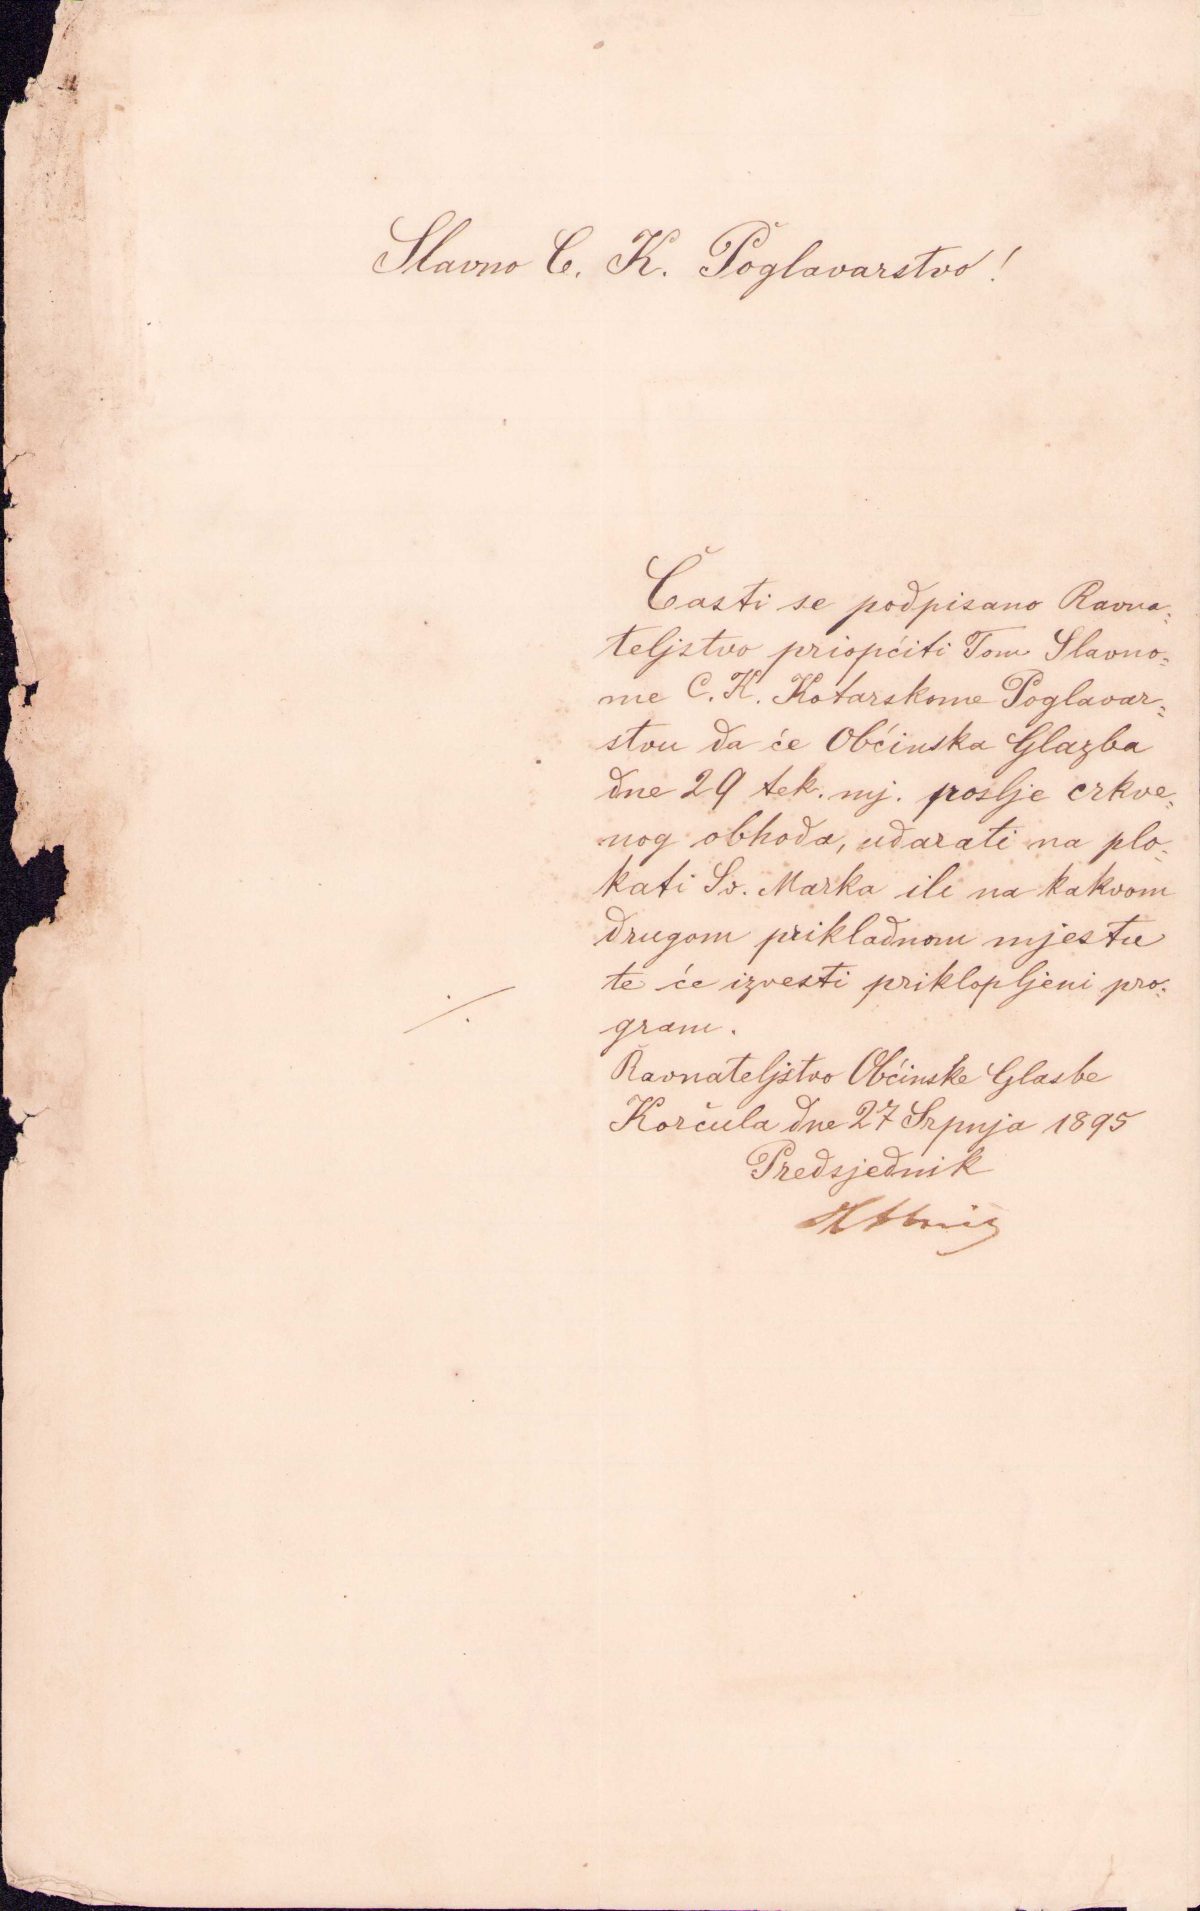 Slavno C. K. Poglavarstvo!
Časti se podpisano Ravna=
teljstvo priopćiti Tom Slavno=
me C. K. Kotarskome Poglavar=
stvu da će Obćinska Glazba
dne 29 tek. mj. poslje crkve=
nog obhoda, udarati na plo=
kati Sv. Marka ili na kakvom
drugom prikladnom mjestu
te će izvesti priklopljeni pro=
gram.
./.
Ravnateljstvo Obćinske Glasbe
Korčula dne 27 Srpnja 1895
Predsjednik